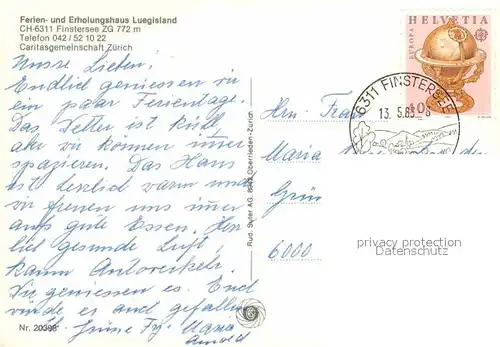 Ferien- und Erholungshaus Luegisland
CH-6311 Finstersee ZG 772 m
Telefon 042 / 52 10 22
Caritasgemeinschaft Zürich
Unsre Lieben!
Endlich geniessen wir
ein paar Ferientage.
Das Wetter ist kühl,
aber wir können immer
spazieren. Das Haus
ist herzlich warm und
wir freuen uns immer
aufs gute Essen. Herr-
lich gesunde Luft,
kaum Autoverkehr.
Wir geniessen es. Euch
würde es auch gefallen
Grüsse Maria
Arnold
Nr. 20388
Rud. Suter AG, 8942 Oberrieden-Zürich
HELVETIA
EUROPA
6311 FINSTERSEE
13.5.83-8
Hrn. Franz
Maria
Grün
6000
privacy protection watermark
ansichtskarten-lexikon.de